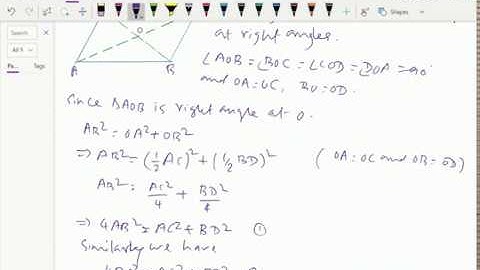 Shapes
at right angles.
∠AOB = ∠BOC = ∠COD = ∠DOA = 90°
and OA=OC, BO=OD.
A B
O
Since ΔAOB is right angle at O.
AB² = OA² + OB²
⇒ AB² = (½ AC)² + (½ BD)² (OA=OC and OB=OD)
AB² = AC²/4 + BD²/4
⇒ 4AB² = AC² + BD² ①
Similarly we have